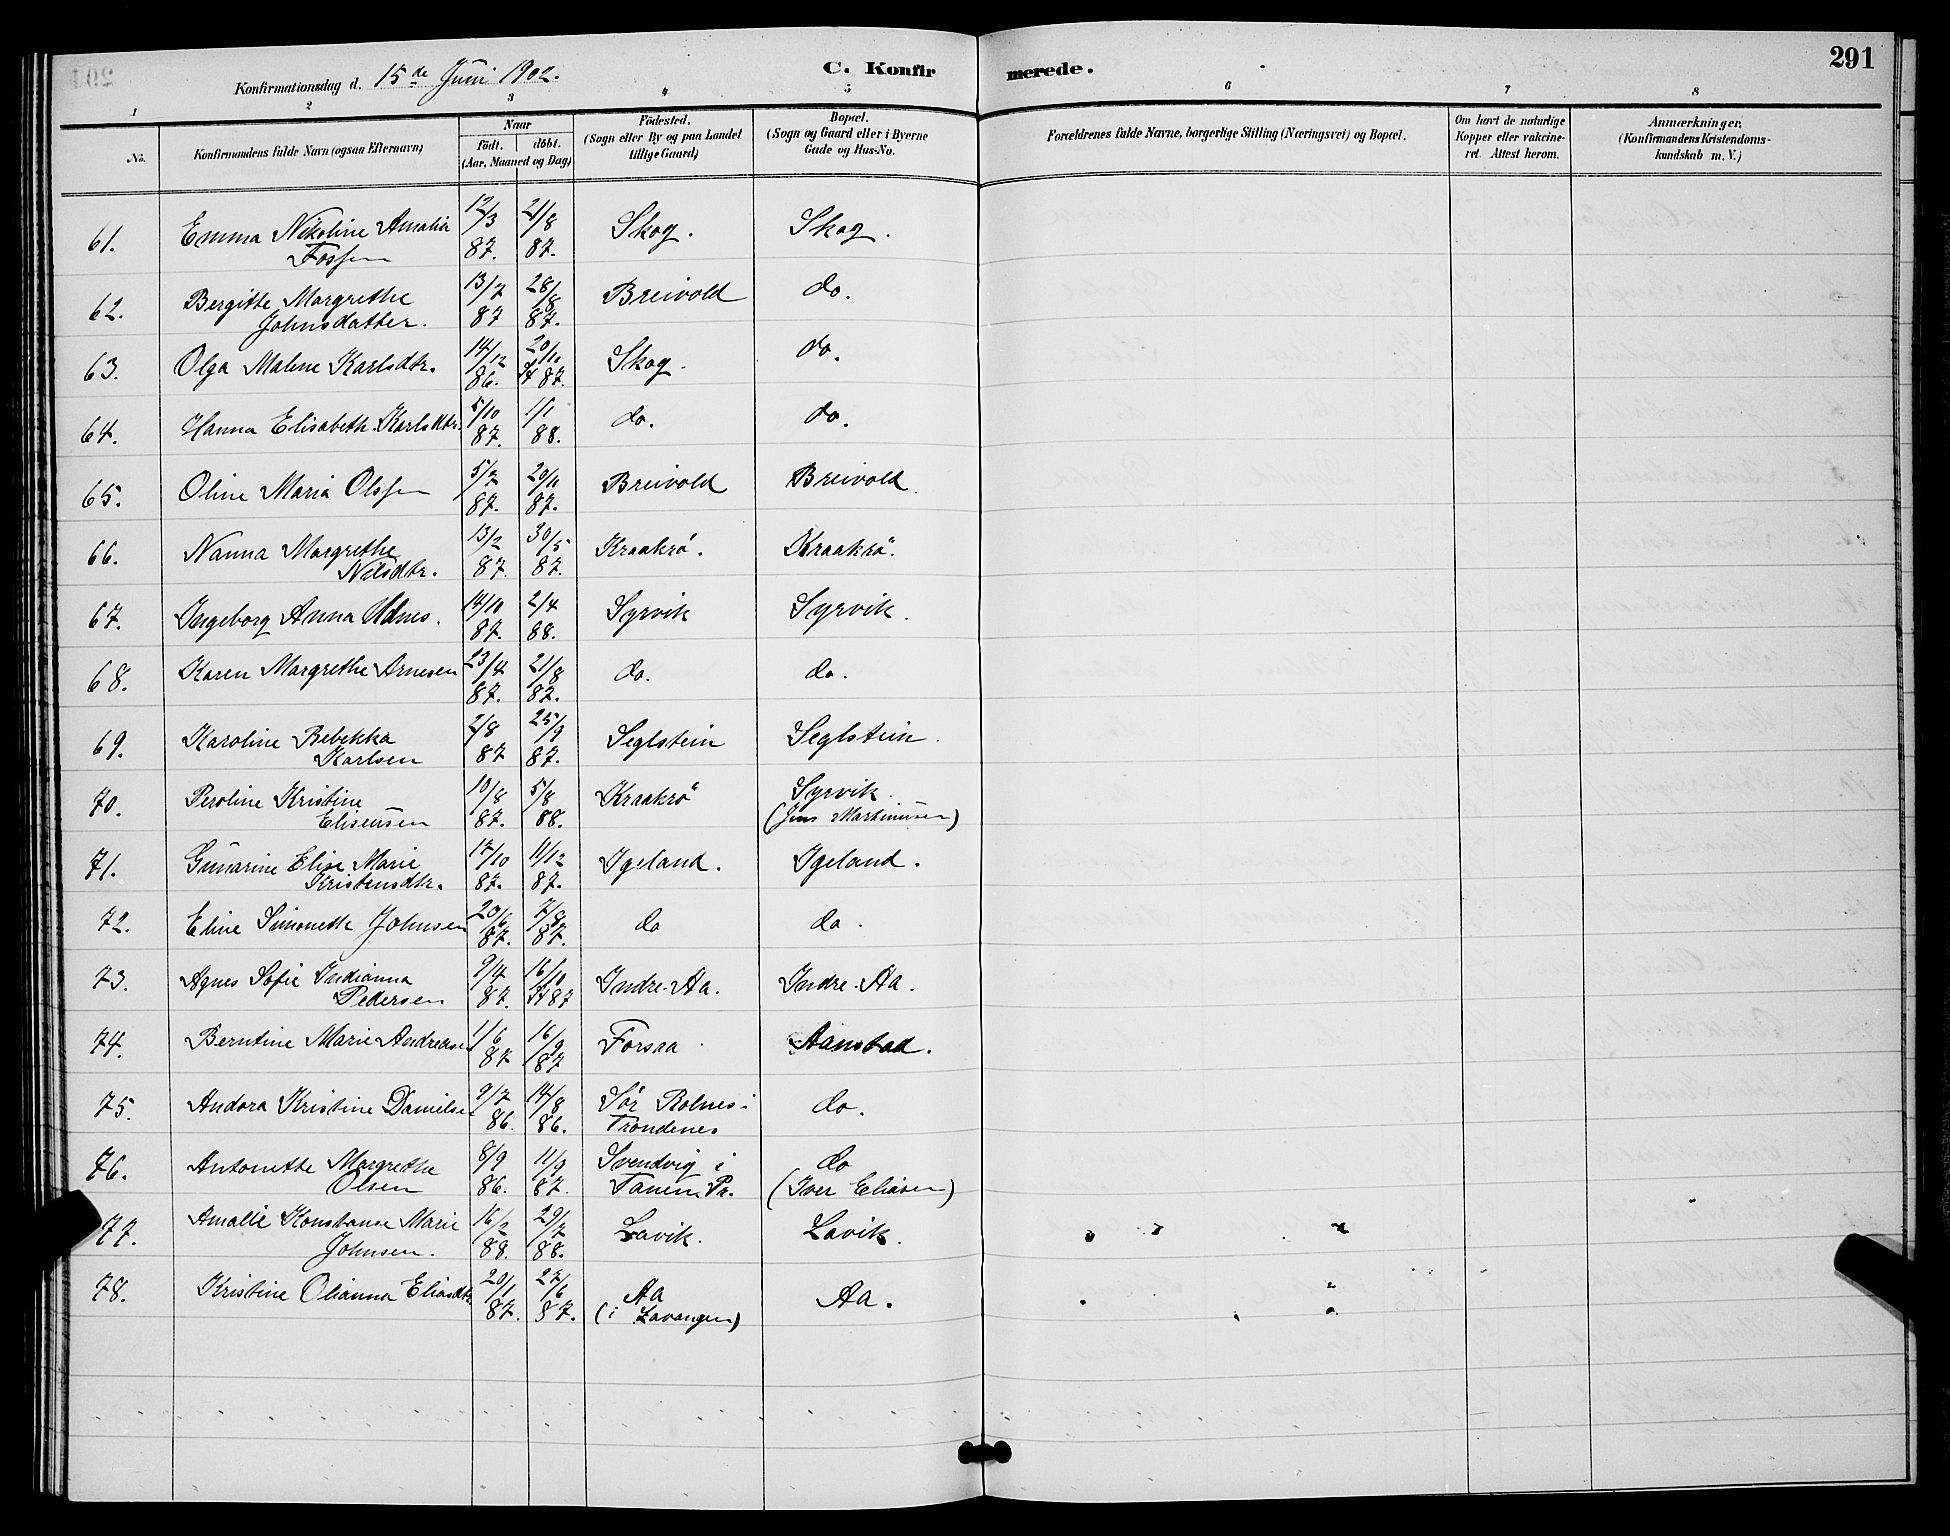 Konfirmationsdag d. 15de Juni 1902.
C. Konfirmerede.
291
1 2 3 4 5 6 7 8
No. Konfirmandens fulde Navn (ogsaa Efternavn) Naar födt. döbt. (Aar, Maaned og Dag) Födested. (Sogn eller By og paa Landet tillige Gaard) Bopæl. (Sogn og Gaard eller i Byerne Gade og Hus-No. Forældrenes fulde Navne, borgerlige Stilling (Næringsvei) og Bopæl. Om havt de naturlige Kopper eller vakcineret. Attest herom. Anmærkninger, (Konfirmandens Kristendomskundskab m. V.)
61. Emma Nikoline Amalia Fossen 12/3 87. 21/8 87. Skog. Skog.
62. Bergitte Margrethe Johnsdatter. 13/7 87 28/8 87. Breivold do.
63. Olga Malene Karlsdtr. 14/12 86. 20/10 87. Skog. do.
64. Hanna Elisabeth Karlsdtr. 5/10 87. 1/1 88. do. do.
65. Oline Maria Olssen 5/7 87. 20/11 87. Breivold Breivold.
66. Nanna Margrethe Nilsdtr. 13/2 87. 30/5 87. Kraakrø. Kraakrø.
67. Ingeborg Anna Udnes. 14/10 87. 2/4 88. Syrvik Syrvik.
68. Karen Margrethe Arnesen 23/4 87. 21/8 87. do. do.
69. Karoline Rebekka Karlsen 2/8 87 25/9 87. Seglstein Seglstein.
70. Peroline Kristine Eliseussen 10/8 87. 5/8 88. Kraakrø Syrvik (Jens Martinussen)
71. Gunarine Elise Marie Kristensdtr. 17/10 87. 11/12 87. Igeland. Igeland.
72. Eline Simonette Johnsen 20/6 87. 7/8 87. do do.
73. Agnes Sofie Indianna Pedersen 9/4 87. 16/10 87 Indre-Aa. Indre-Aa.
74. Berntine Marie Andreasen 1/6 87 16/9 87 Forsaa Aanstad.
75. Andora Kristine Danielsen 9/7 86. 14/8 86. Sør Rolnes i Trondenes do.
76. Antonette Margrethe Olsen 8/9 86. 11/9 87. Svendvig i Tanem Pr. do (Iver Eliasen)
77. Amalie Konstanse Marie Johnsen. 16/2 88. 29/7 88. Lavik. Lavik.
78. Kristine Olianna Eliasdtr 20/1 87. 27/6 87. Aa (i Lavangen) Aa.